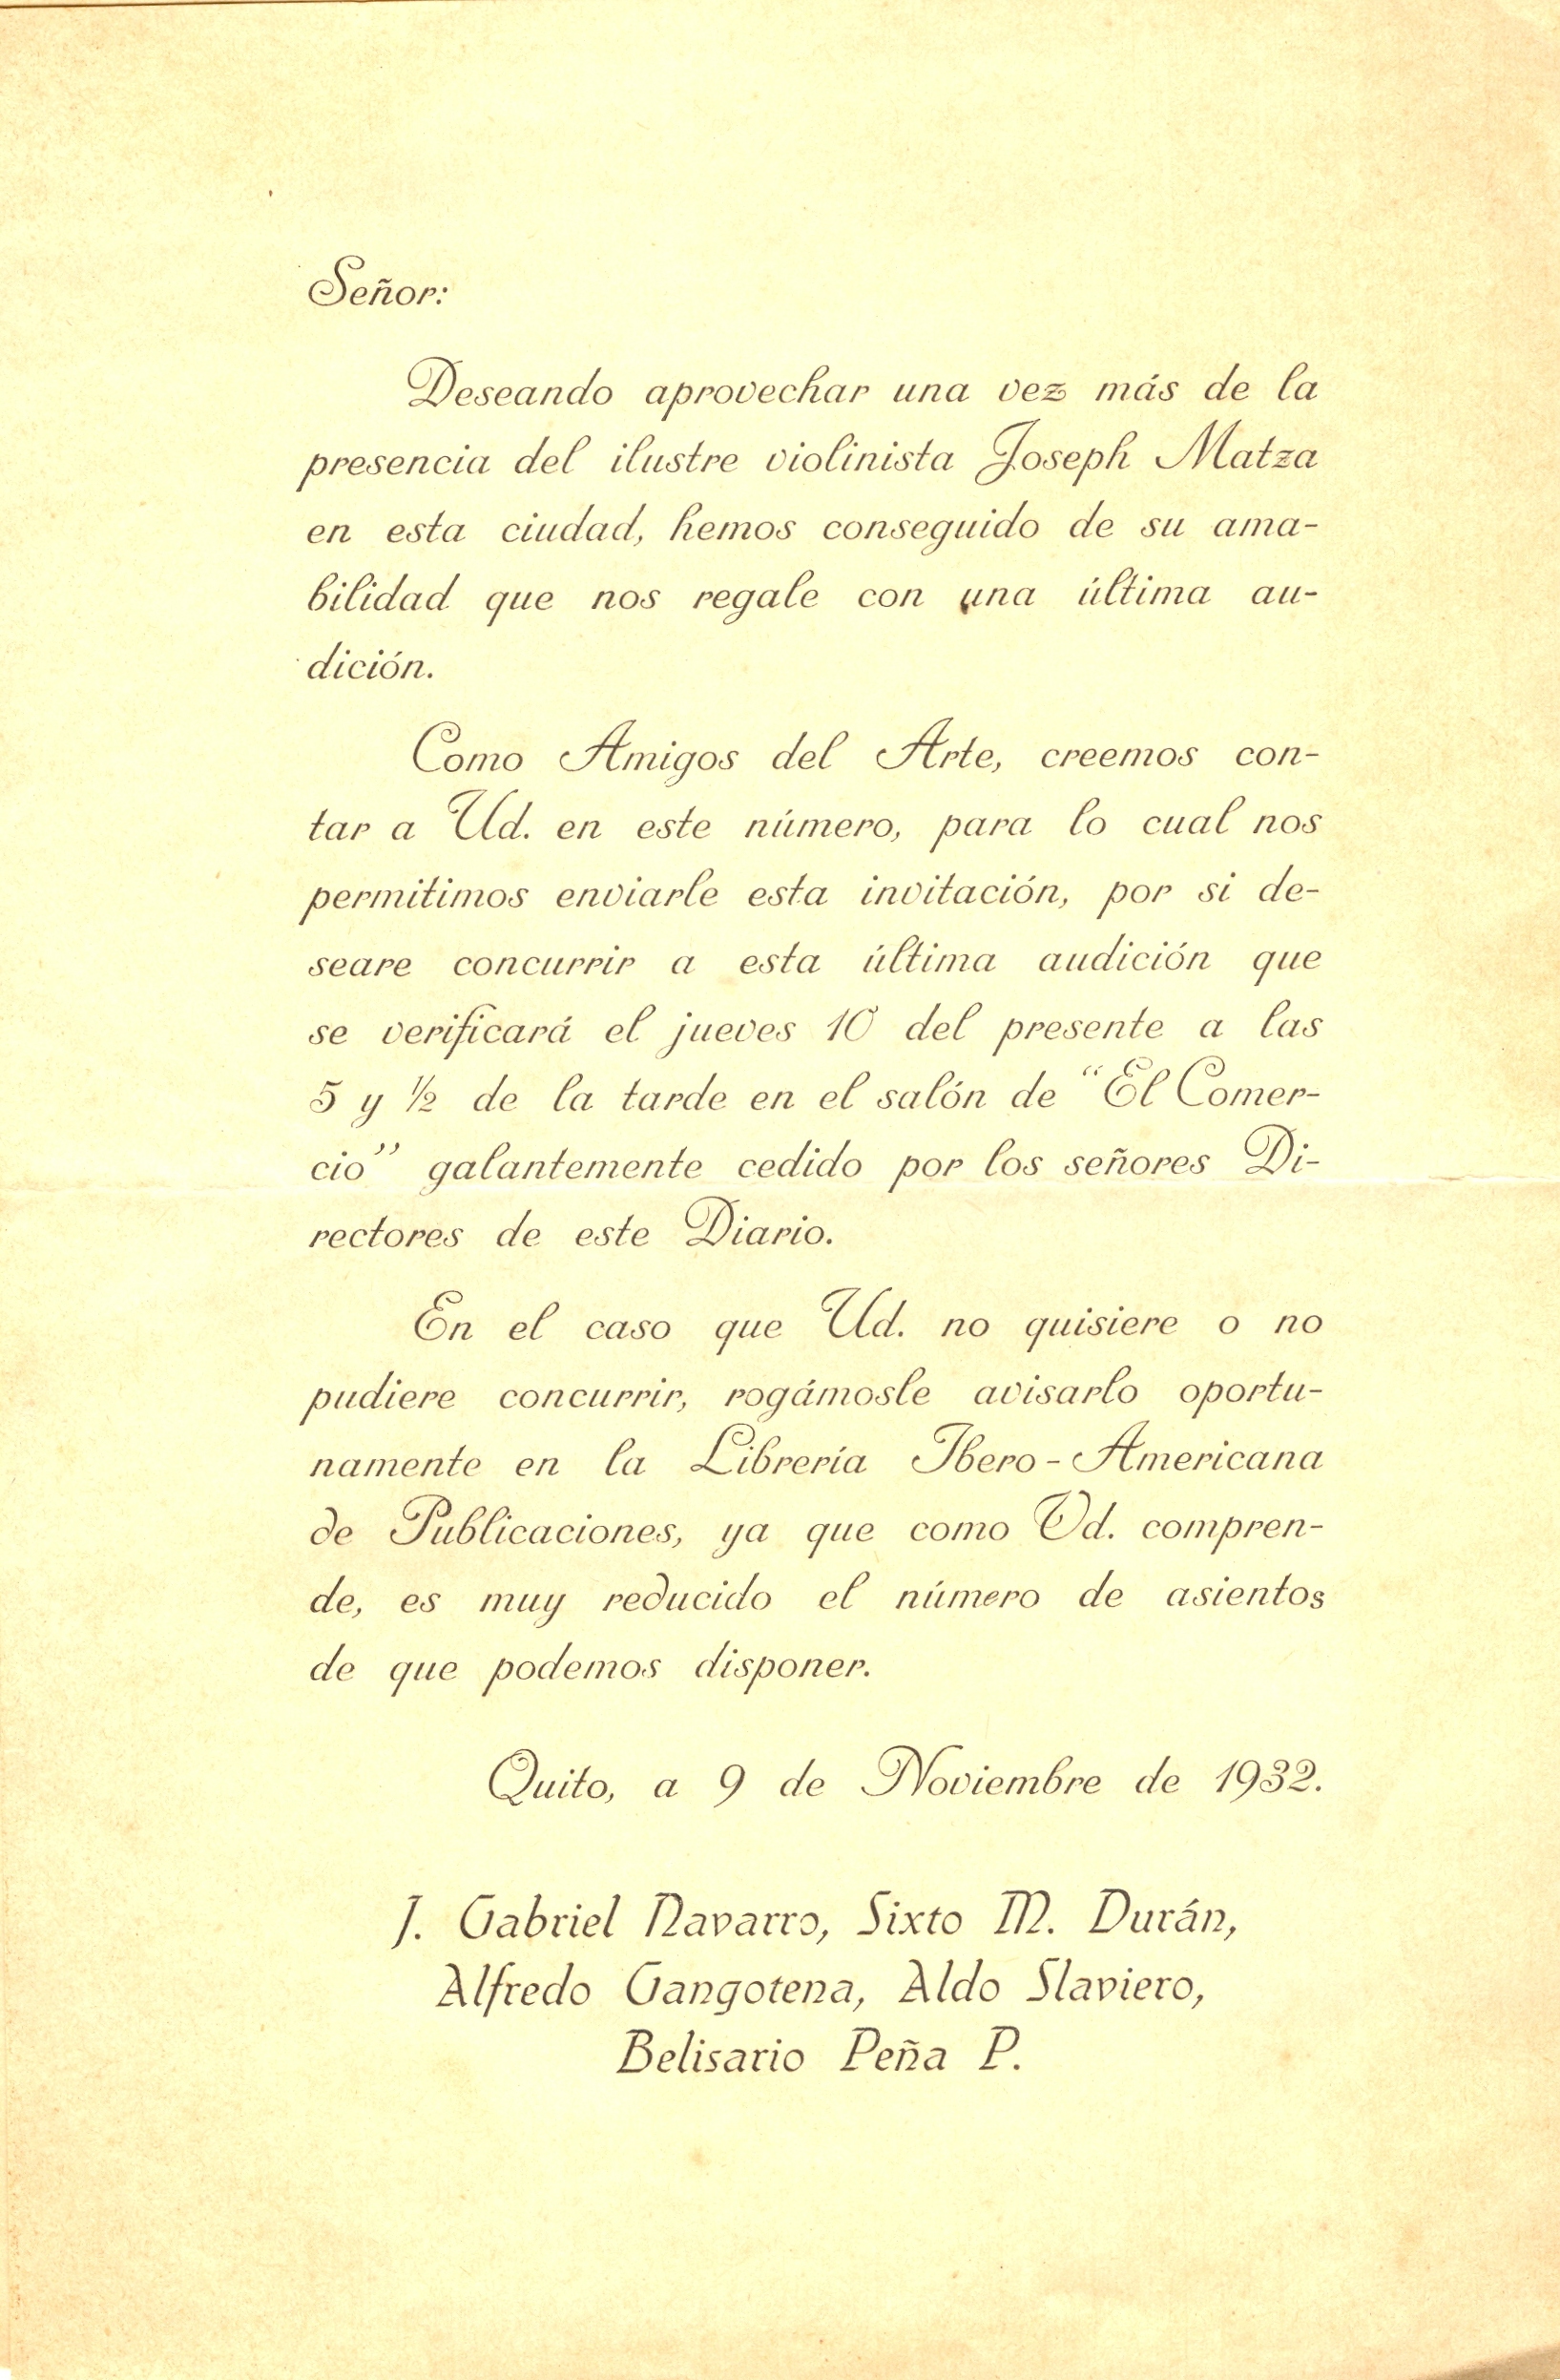 Señor:
Deseando aprovechar una vez más de la
presencia del ilustre violinista Joseph Matza
en esta ciudad, hemos conseguido de su ama-
bilidad que nos regale con una última au-
dición.
Como Amigos del Arte, creemos con-
tar a Ud. en este número, para lo cual nos
permitimos enviarle esta invitación, por si de-
seare concurrir a esta última audición que
se verificará el jueves 10 del presente a las
5 y ½ de la tarde en el salón de “El Comer-
cio” galantemente cedido por los señores Di-
rectores de este Diario.
En el caso que Ud. no quisiere o no
pudiere concurrir, rogámosle avisarlo oportu-
namente en la Librería Ibero-Americana
de Publicaciones, ya que como Ud. compren-
de, es muy reducido el número de asientos
de que podemos disponer.
Quito, a 9 de Noviembre de 1932.
J. Gabriel Navarro, Sixto M. Durán,
Alfredo Gangotena, Aldo Slaviero,
Belisario Peña P.